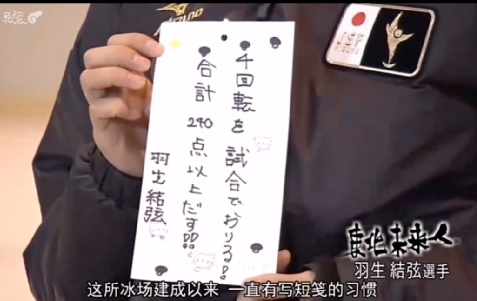 MIZUNO
JSF
4回転を試合でおりる!
合計240点以上だす!!
羽生結弦
東北未来人
羽生 結弦選手
这所冰场建成以来 一直有写短笺的习惯